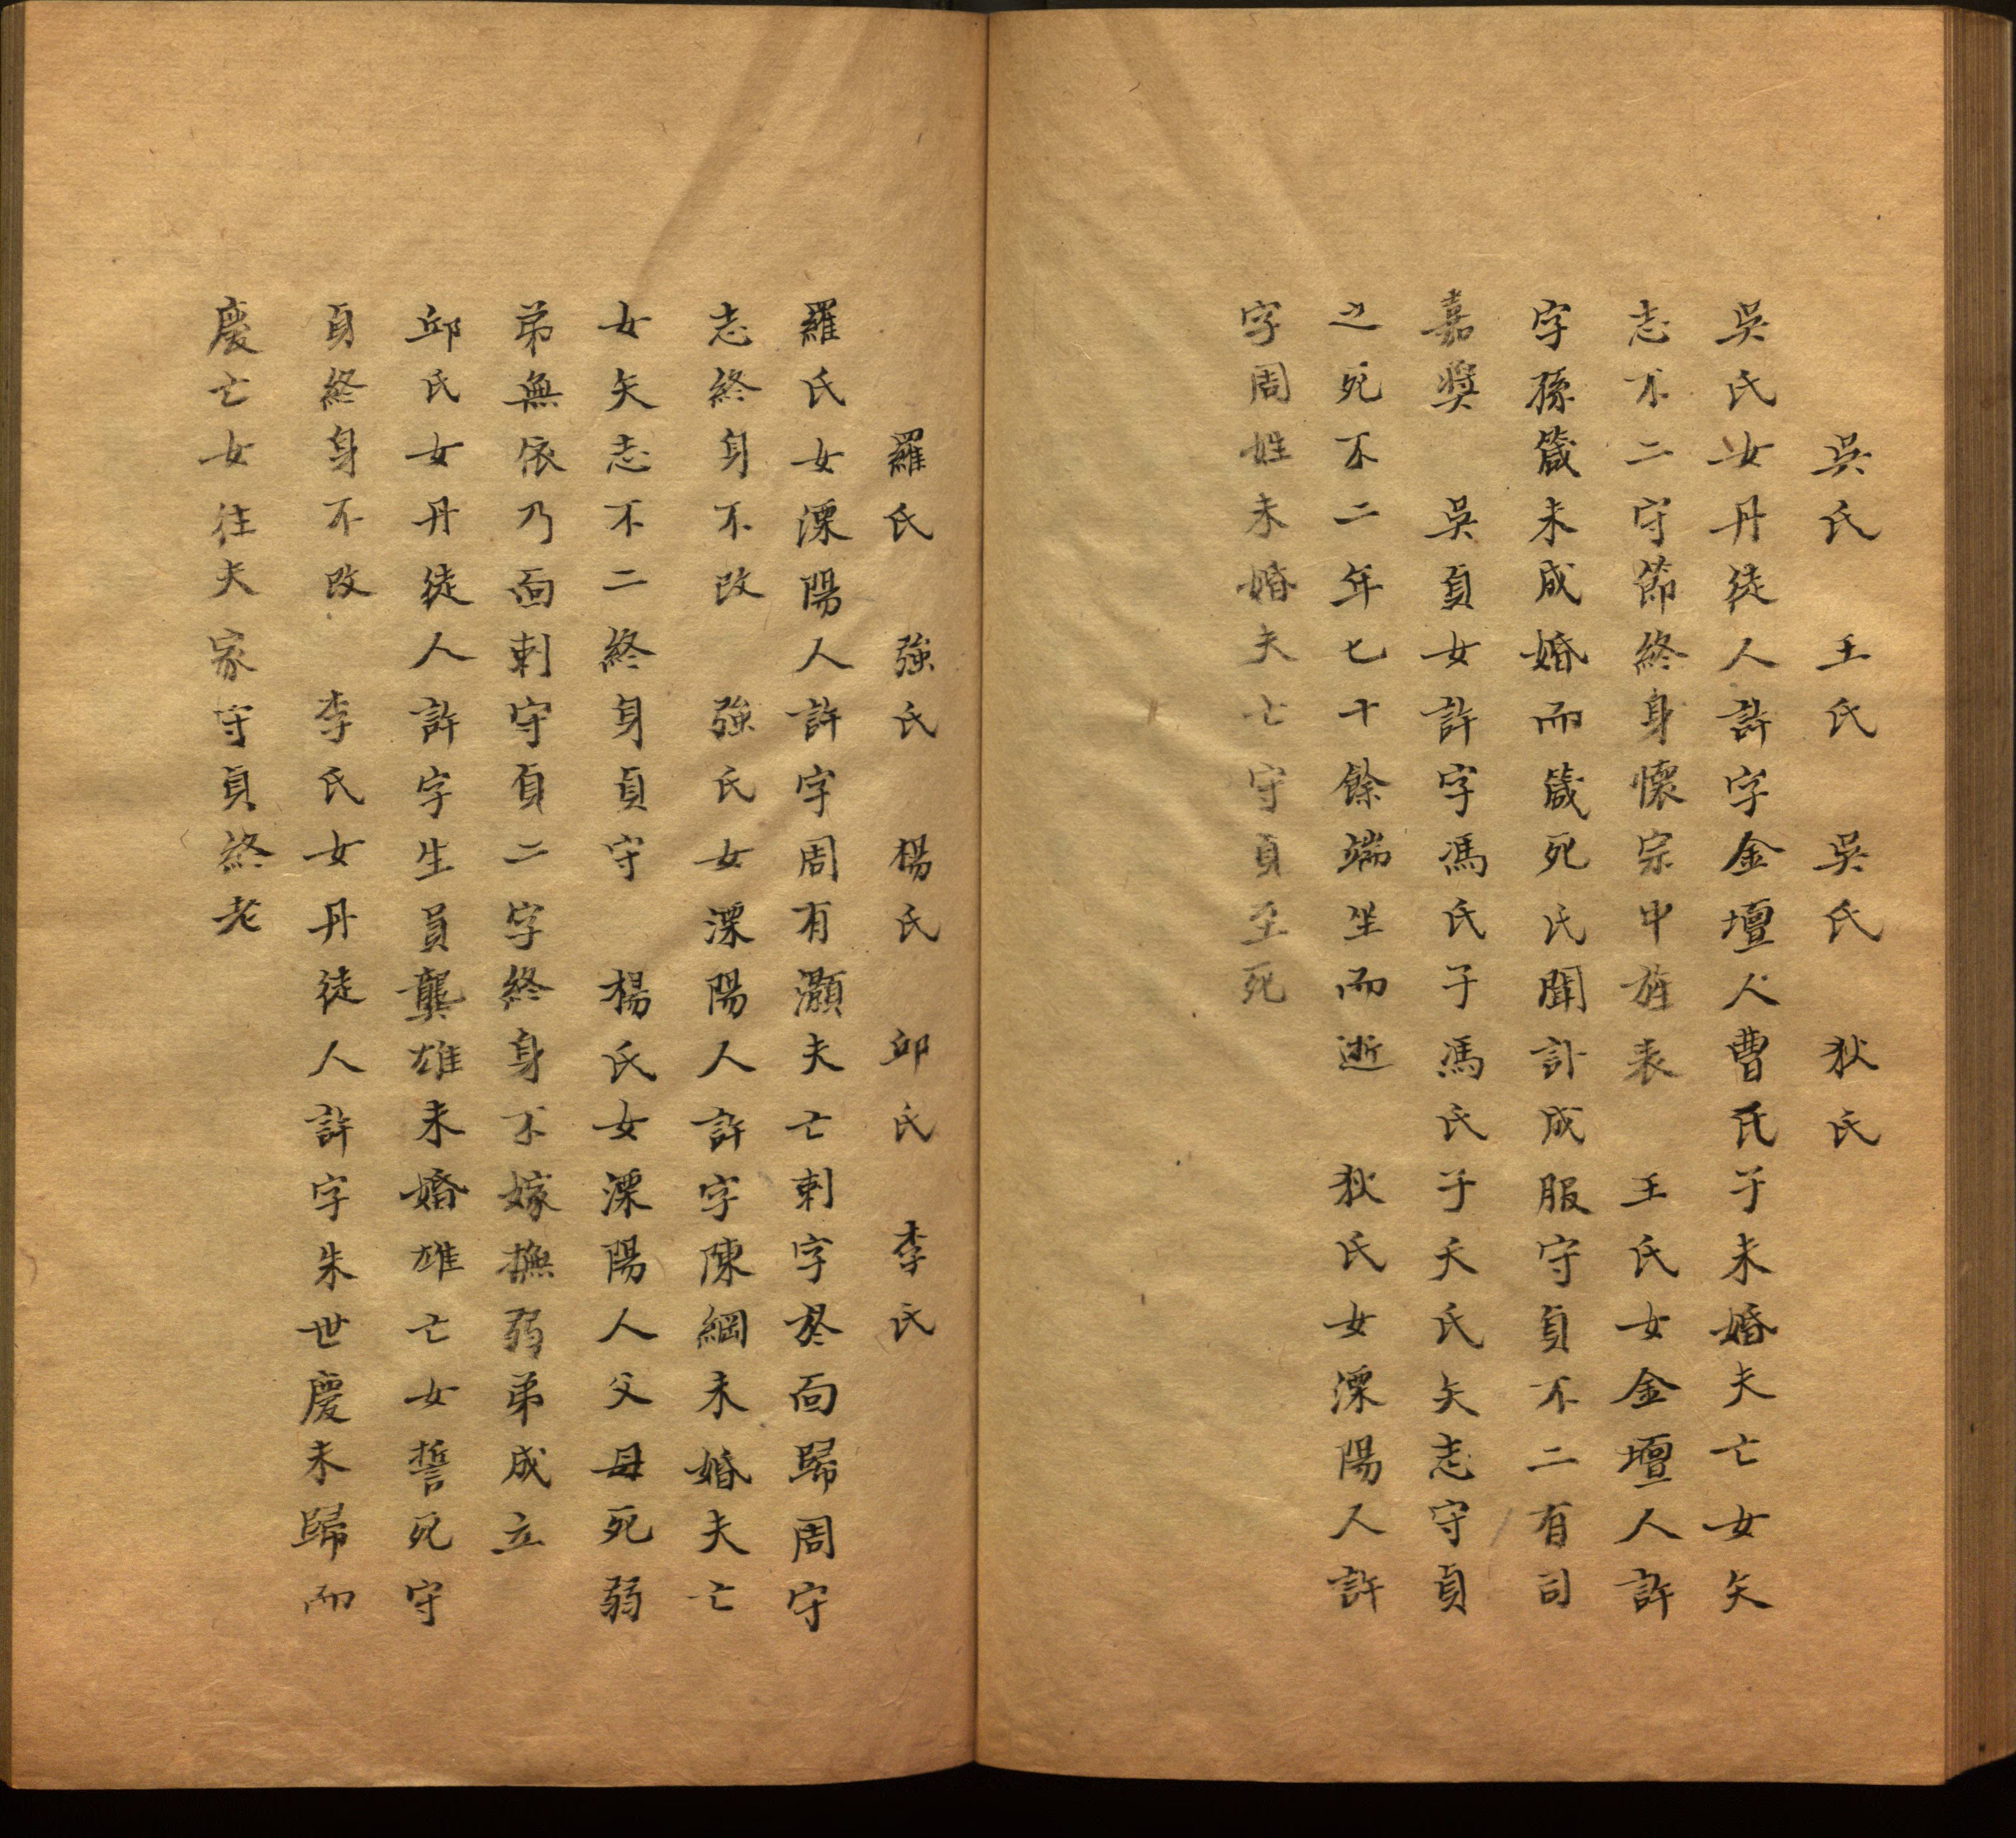 吳氏　王氏　吳氏　狄氏
吳氏女丹徒人許字金壇人曹氏子未婚夫亡女矢
志不二守節終身懷宗中旌表　王氏女金壇人許
字孫箴未成婚而箴死氏聞訃成服守貞不二有司
嘉奬　吳貞女許字馮氏子馮氏子夭氏矢志守貞
之死不二年七十餘端坐而逝　狄氏女溧陽人許
字周姓未婚夫亡守貞至死
羅氏　強氏　楊氏　邱氏　李氏
羅氏女溧陽人許字周有灝夫亡刺字於面歸周守
志終身不改　強氏女溧陽人許字陳綱未婚夫亡
女矢志不二終身貞守　楊氏女溧陽人父母死弱
弟無依乃面刺守貞二字終身不嫁撫弱弟成立
邱氏女丹徒人許字生員龔雄未婚雄亡女誓死守
貞終身不改　李氏女丹徒人許字朱世慶未歸而
慶亡女往夫家守貞終老